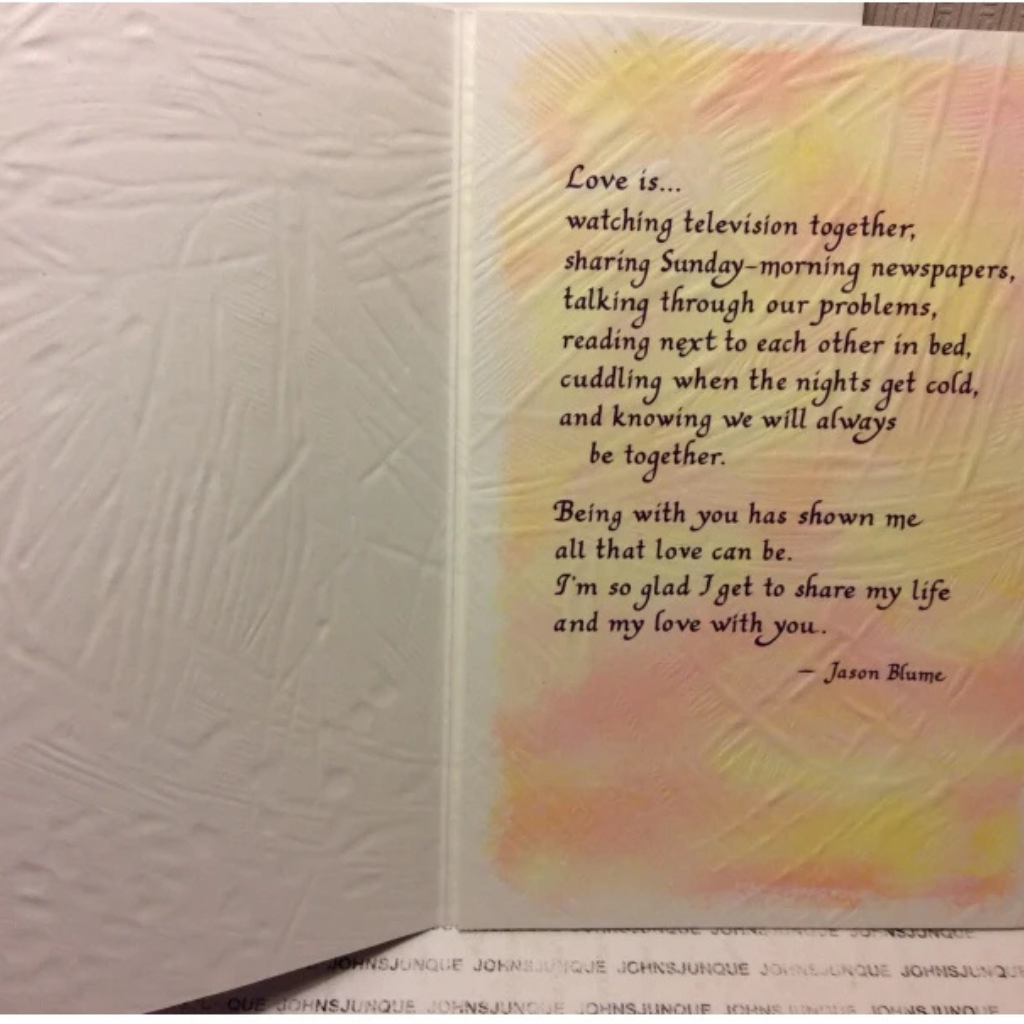 Love is...
watching television together,
sharing Sunday-morning newspapers,
talking through our problems,
reading next to each other in bed,
cuddling when the nights get cold,
and knowing we will always
be together.
Being with you has shown me
all that love can be.
I'm so glad I get to share my life
and my love with you.
— Jason Blume
JOHNSJUNQUE JOHNSJUNQUE
JOHNSJUNQUE JOHNSJUNQUE JOHNSJUNQUE JOHNSJUNQUE JOHNSJUNQUE
QUE JOHNSJUNQUE JOHNSJUNQUE JOHNSJUNQUE JOHNSJUNQUE